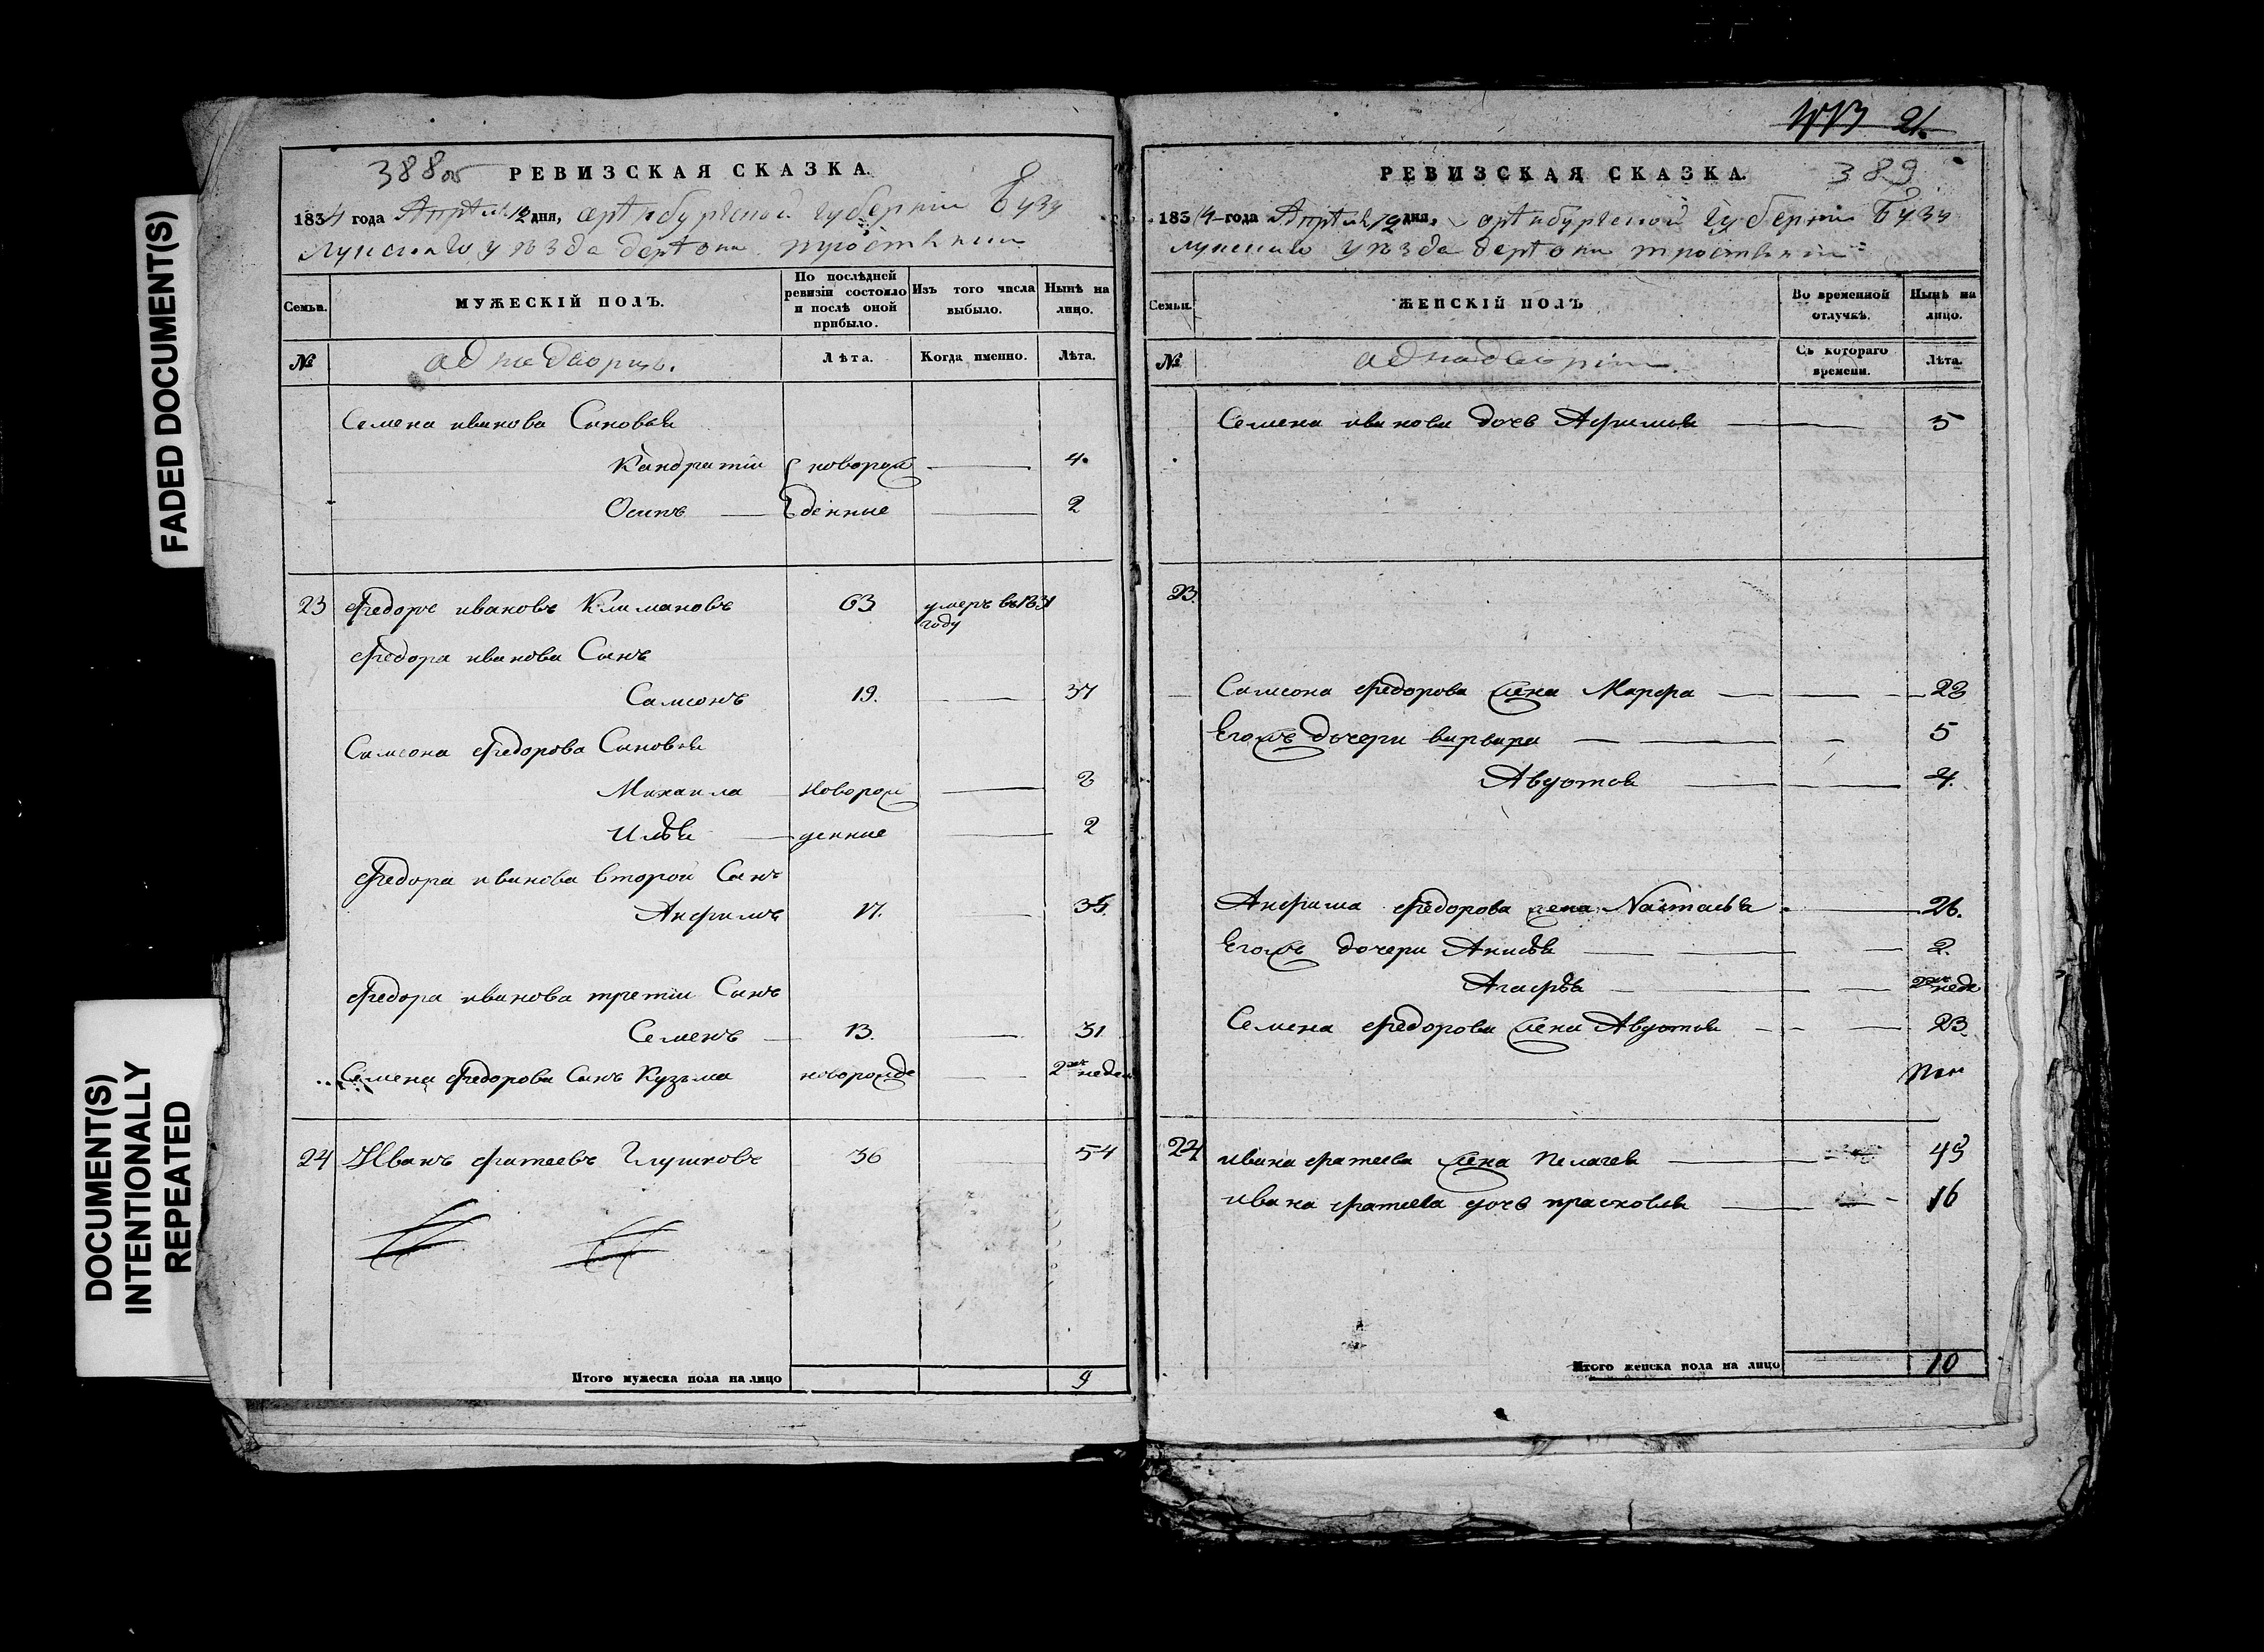 FADED DOCUMENT(S)
DOCUMENT(S)
INTENTIONALLY
REPEATED
388об РЕВИЗСКАЯ СКАЗКА.
1834 года Апреля 12 дня, оренбургской губернии Бузу
лукского уезда деревни
Семьи. МУЖЕСКІЙ ПОЛЪ. По послѣдней ревизіи состояло и послѣ оной прибыло. Изъ того числа выбыло. Нынѣ на лицо.
№ аднадворцы. Лѣта. Когда именно. Лѣта.
Семена иванова Сыновья
Кандратіи новорож 4.
Осипъ денные 2
23 Федоръ ивановъ Климановъ 63 умеръ въ 1831
году
Федора иванова Сынъ
Самсонъ 19. 37
Самсона Федорова Сыновья
Михаила новорож 3
Илья денные 2
Федора иванова второй Сынъ
Анфимъ 17. 35.
Федора иванова третіи Сынъ
Семенъ 13. 31
Семена Федорова Сынъ Кузьма новорожде 2 недели
24 Иванъ фатеевъ Глушковъ 36 54
Итого мужеска пола на лицо 9
21.
РЕВИЗСКАЯ СКАЗКА. 389
1834 года Апреля 12 дня, оренбургской губернии Бузу
лукского уезда деревни
Семьи. ЖЕНСКІЙ ПОЛЪ Во временной отлучкѣ. Нынѣ на лицо.
№ Съ котораго времени. Лѣта.
Семена иванова дочь Афимья 5
23.
Самсона Федорова жена Марфа 28
Егожъ дочери варвара 5
Авдотья 4.
Анфима Федорова жена Настасья 26.
Егожъ дочери Анисья 2.
Агафья 2 неде
Семена Федорова жена Авдотья 23.
24 ивана фатеева жена Пелагея 49
ивана фатеева дочь прасковья 16
Итого женска пола на лицо 10